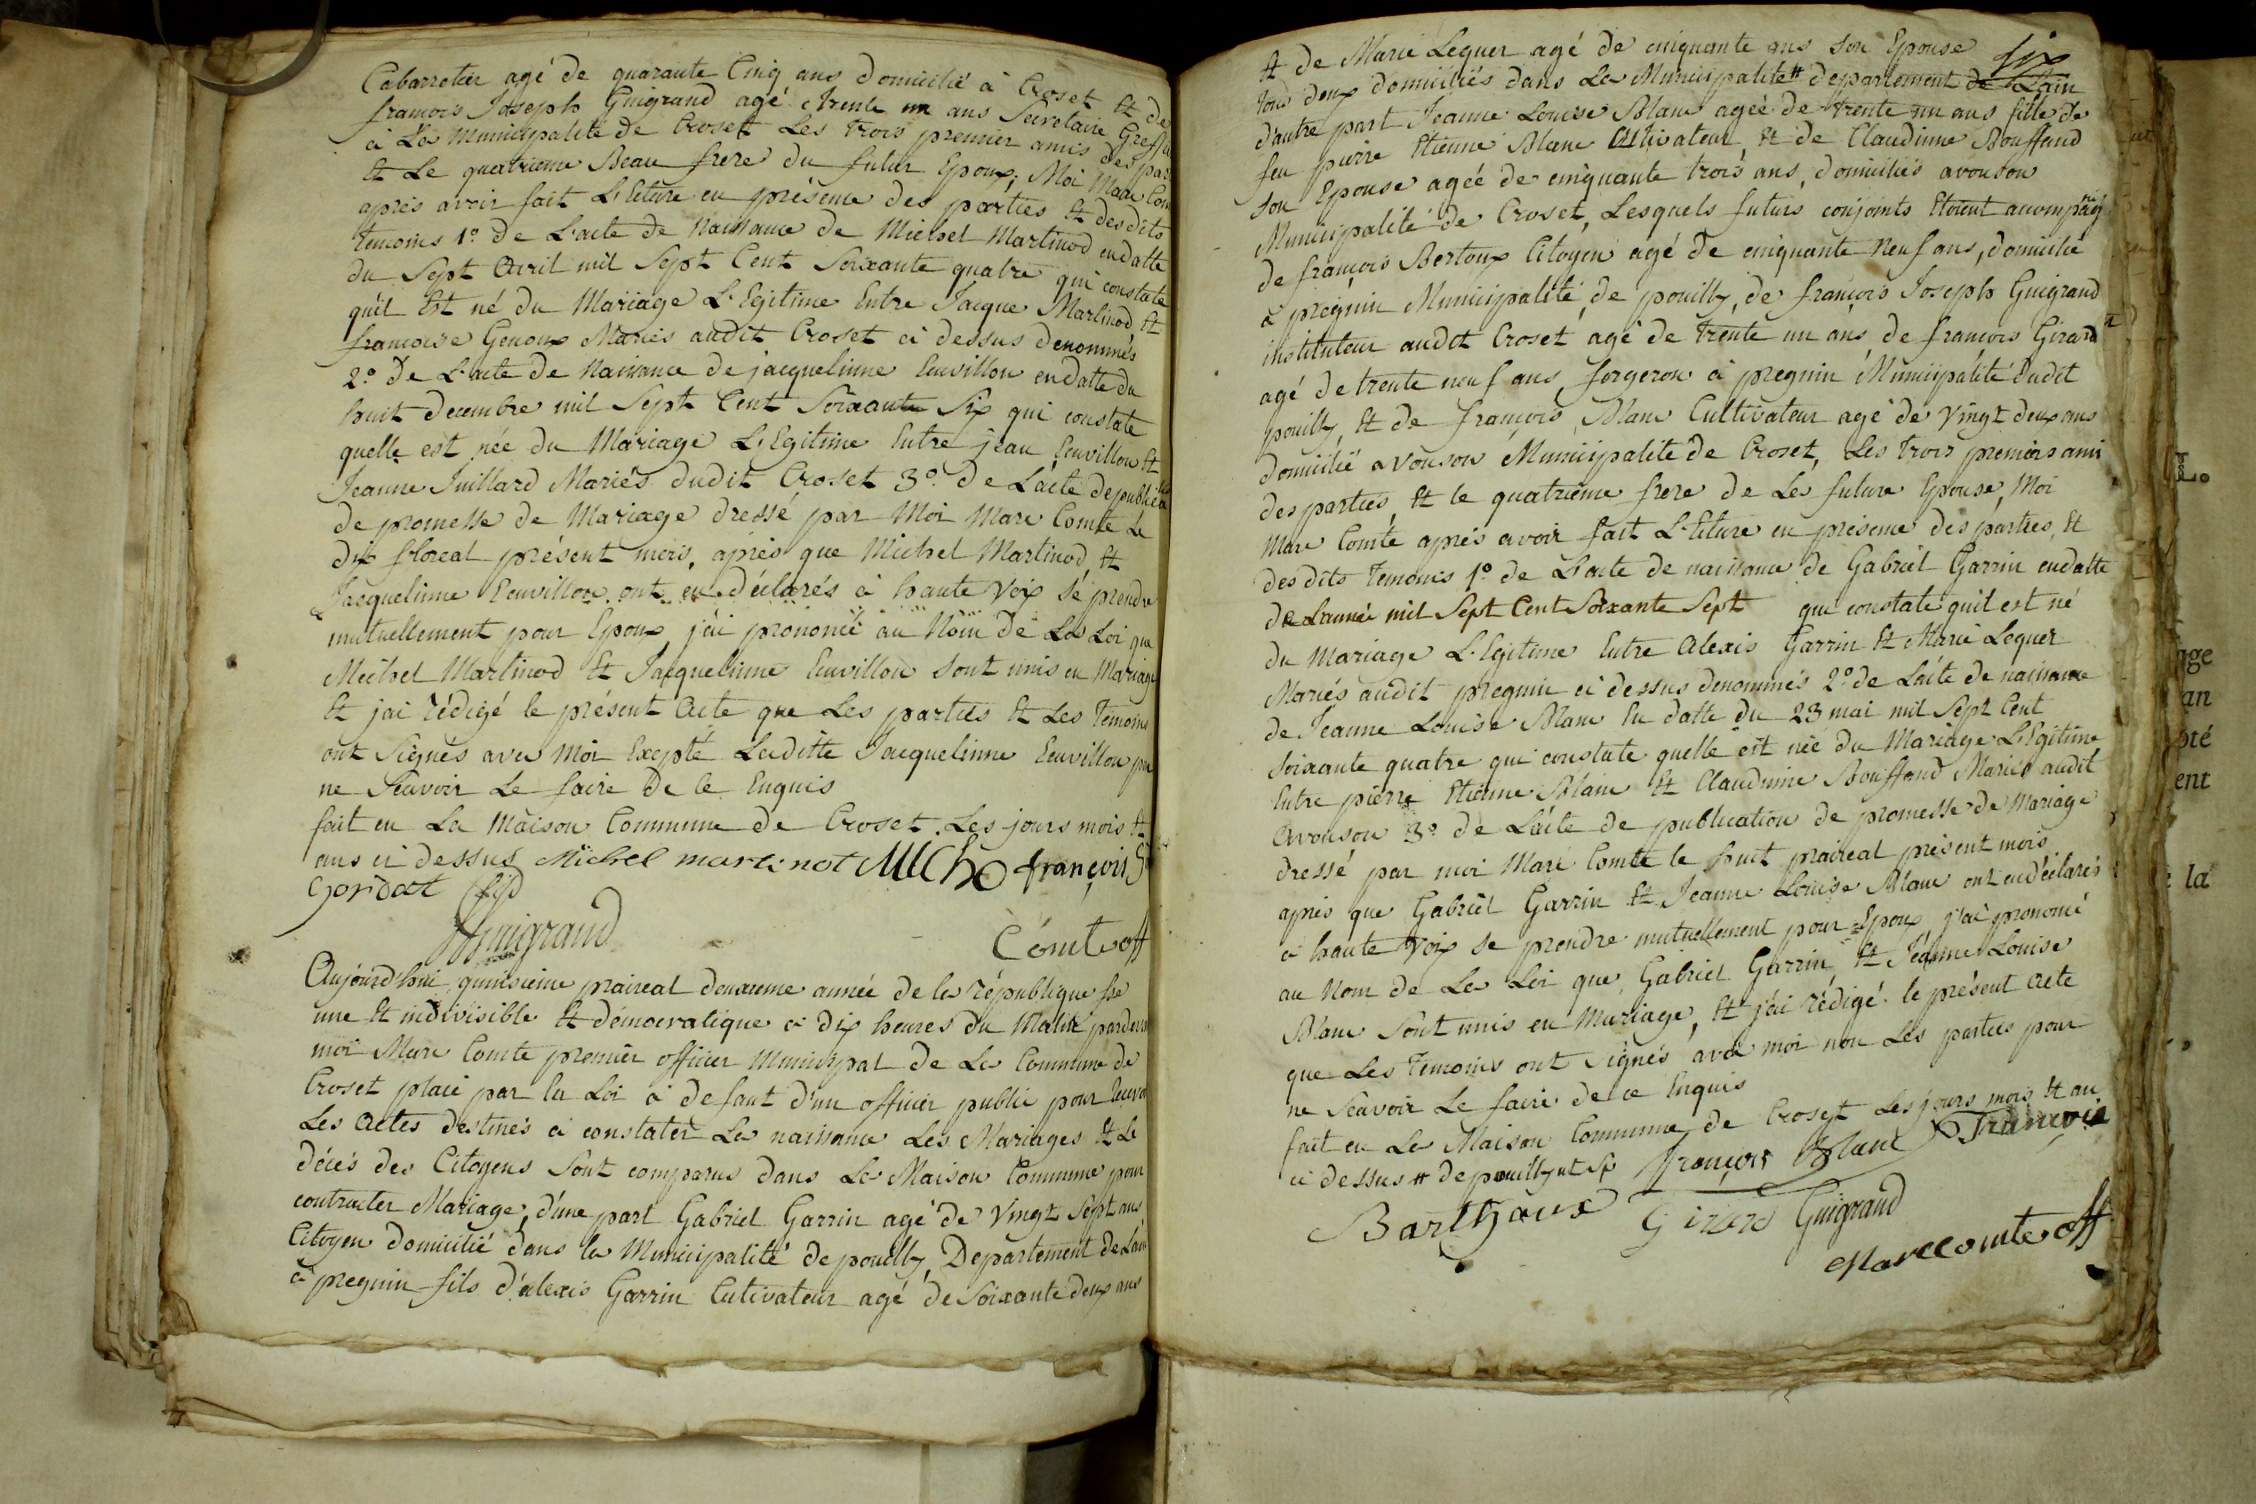 Cabarretier agé de quarante Cinq ans domicilié à Croset Et de
françois Joseph Guigrand agé trente un ans Secretaire Greffier
à La Municipalité de Croset Les trois premier amis des par
Et Le quatrieme Beau frere du futur Epoux, Moi Marc Com
aprés avoir fait L'Ecture en présence des parties Et des dits
temoins 1º de L'acte de Naissance de Michel Martinod en datte
du Sept Avril mil Sept Cent Soixante quatre qui constate
qu'il Est né du Mariage L'Egitime Entre Jacque Martinod Et
francoise Genoux Mariés audit Croset ci dessus denommés
2º de L'acte de Naissance de jacquelinne Emvillon en datte du
huit decembre mil Sept Cent Soixante Six qui constate
quelle est née du Mariage L'Egitime Entre jean Emvillon Et
Jeanne Juillard Mariés dudit Croset 3º de L'acte de publica
de promesse de Mariage dressé par Moi Marc Comte Le
dix floreal présent mois, aprés que Michel Martinod Et
Jacquelinne Emvillon ont en déclarés à haute Voix sé prendre
mutuellement pour Epoux, j'ai prononcé au Nom de La Loi que
Michel Martinod Et Jacquelinne Emvillon sont unis en Mariage
Et j'ai rédigé le présent Acte que Les parties Et Les Temoins
ont Signés avec Moi Excepté Laditte Jacquelinne Emvillon pou
ne Scavoir Le faire De ce Enquis
fait en La Maison Commune de Croset. Les jours mois Et
ans ci dessus Michel martinot MICHO françois
Goridat
Guigrand
Comte off
Aujourd'hui quinsieme praireal deuxieme année de la république fse
une Et indivisible Et démocratique à dix heures du Matin pardevan
moi Marc Comte premier officier Municipal de La Commune de
Croset placé par la Loi à defaut d'un officier public pour Recevoi
Les Actes destinés à constater La naissance Les Mariages Et Le
décés des Citoyens Sont comparus dans La Maison Commune pour
contracter Mariage, d'une part Gabriel Garrin agé de Vingt Sept ans
Citoyen domicilié dans la Municipalité de pouilly, Departement de L'ain
à pregnin fils d'alexis Garrin Cultivateur agé de Soixante deux ans
Et de Marie Lequer agé de cinquante ans son Epouse
tous deux domiciliés dans La Municipalité # departement de L'ain
d'autre part Jeanne Louise Blanc agée de trente un ans fille de
feu pierre Etienne Blanc Cultivateur Et de Claudinne Bouffand
son Epouse agée de cinquante trois ans, domiciliés avouson
Municipalité de Croset, Lesquels futurs conjoints Etoient acompagn
de françois Bertoux Citoyen agé de cinquante neuf ans, domicilié
à pregnin Municipalité de pouilly, de françois Joseph Guigrand
instituteur audit Croset agé de trente un ans de francois Girard
agé de trente neuf ans forgeron à pregnin Municipalité dudit
pouilly, Et de françois Blanc Cultivateur agé de vingt deux ans
domicilié avouson Municipalité de Croset, Les Trois premiers ami
des parties, Et le quatriéme frere de La future Epouse, Moi
Marc Comte aprés avoir fait L'Ecture en présence des parties, Et
des dits Temoins 1º de L'acte de naissance de Gabriel Garrin en datte
de L'année mil Sept Cent Soixante Sept que constate quil est né
du Mariage L'Egitime Entre Alexis Garrin Et Marie Lequer
Mariés audit pregnin ci dessus denommés 2º de L'acte de naissance
de Jeanne Louise Blanc En datte du 23 mai mil Sept Cent
Soixante quatre qui constate quelle est née du Mariage L'Egitime
Entre pierre Etienne Blanc Et Claudinne Bouffand Mariés audit
avouson 3º de L'acte de publication de promesse de Mariage
dressé par moi Marc Comte le huit praireal présent mois
aprés que Gabriel Garrin Et Jeanne Louise Blanc ont en déclarés
à haute Voix se prendre mutuellement pour Epoux, j'ai prononcé
au Nom de La Loi que Gabriel Garrin, Et Jeanne Louise
Blanc Sont unis en Mariage, Et j'ai rédigé le présent Acte
que Les Temoins ont Signés avec moi non Les parties pour
ne Scavoir Le faire de ce Enquis
fait en La Maison Commune de Croset Les jours mois Et an
ci dessus # de pouilly françois Blanc François
Barthoux Girard Guigrand
Marc comte off
L.
age
an
oté
ent
la